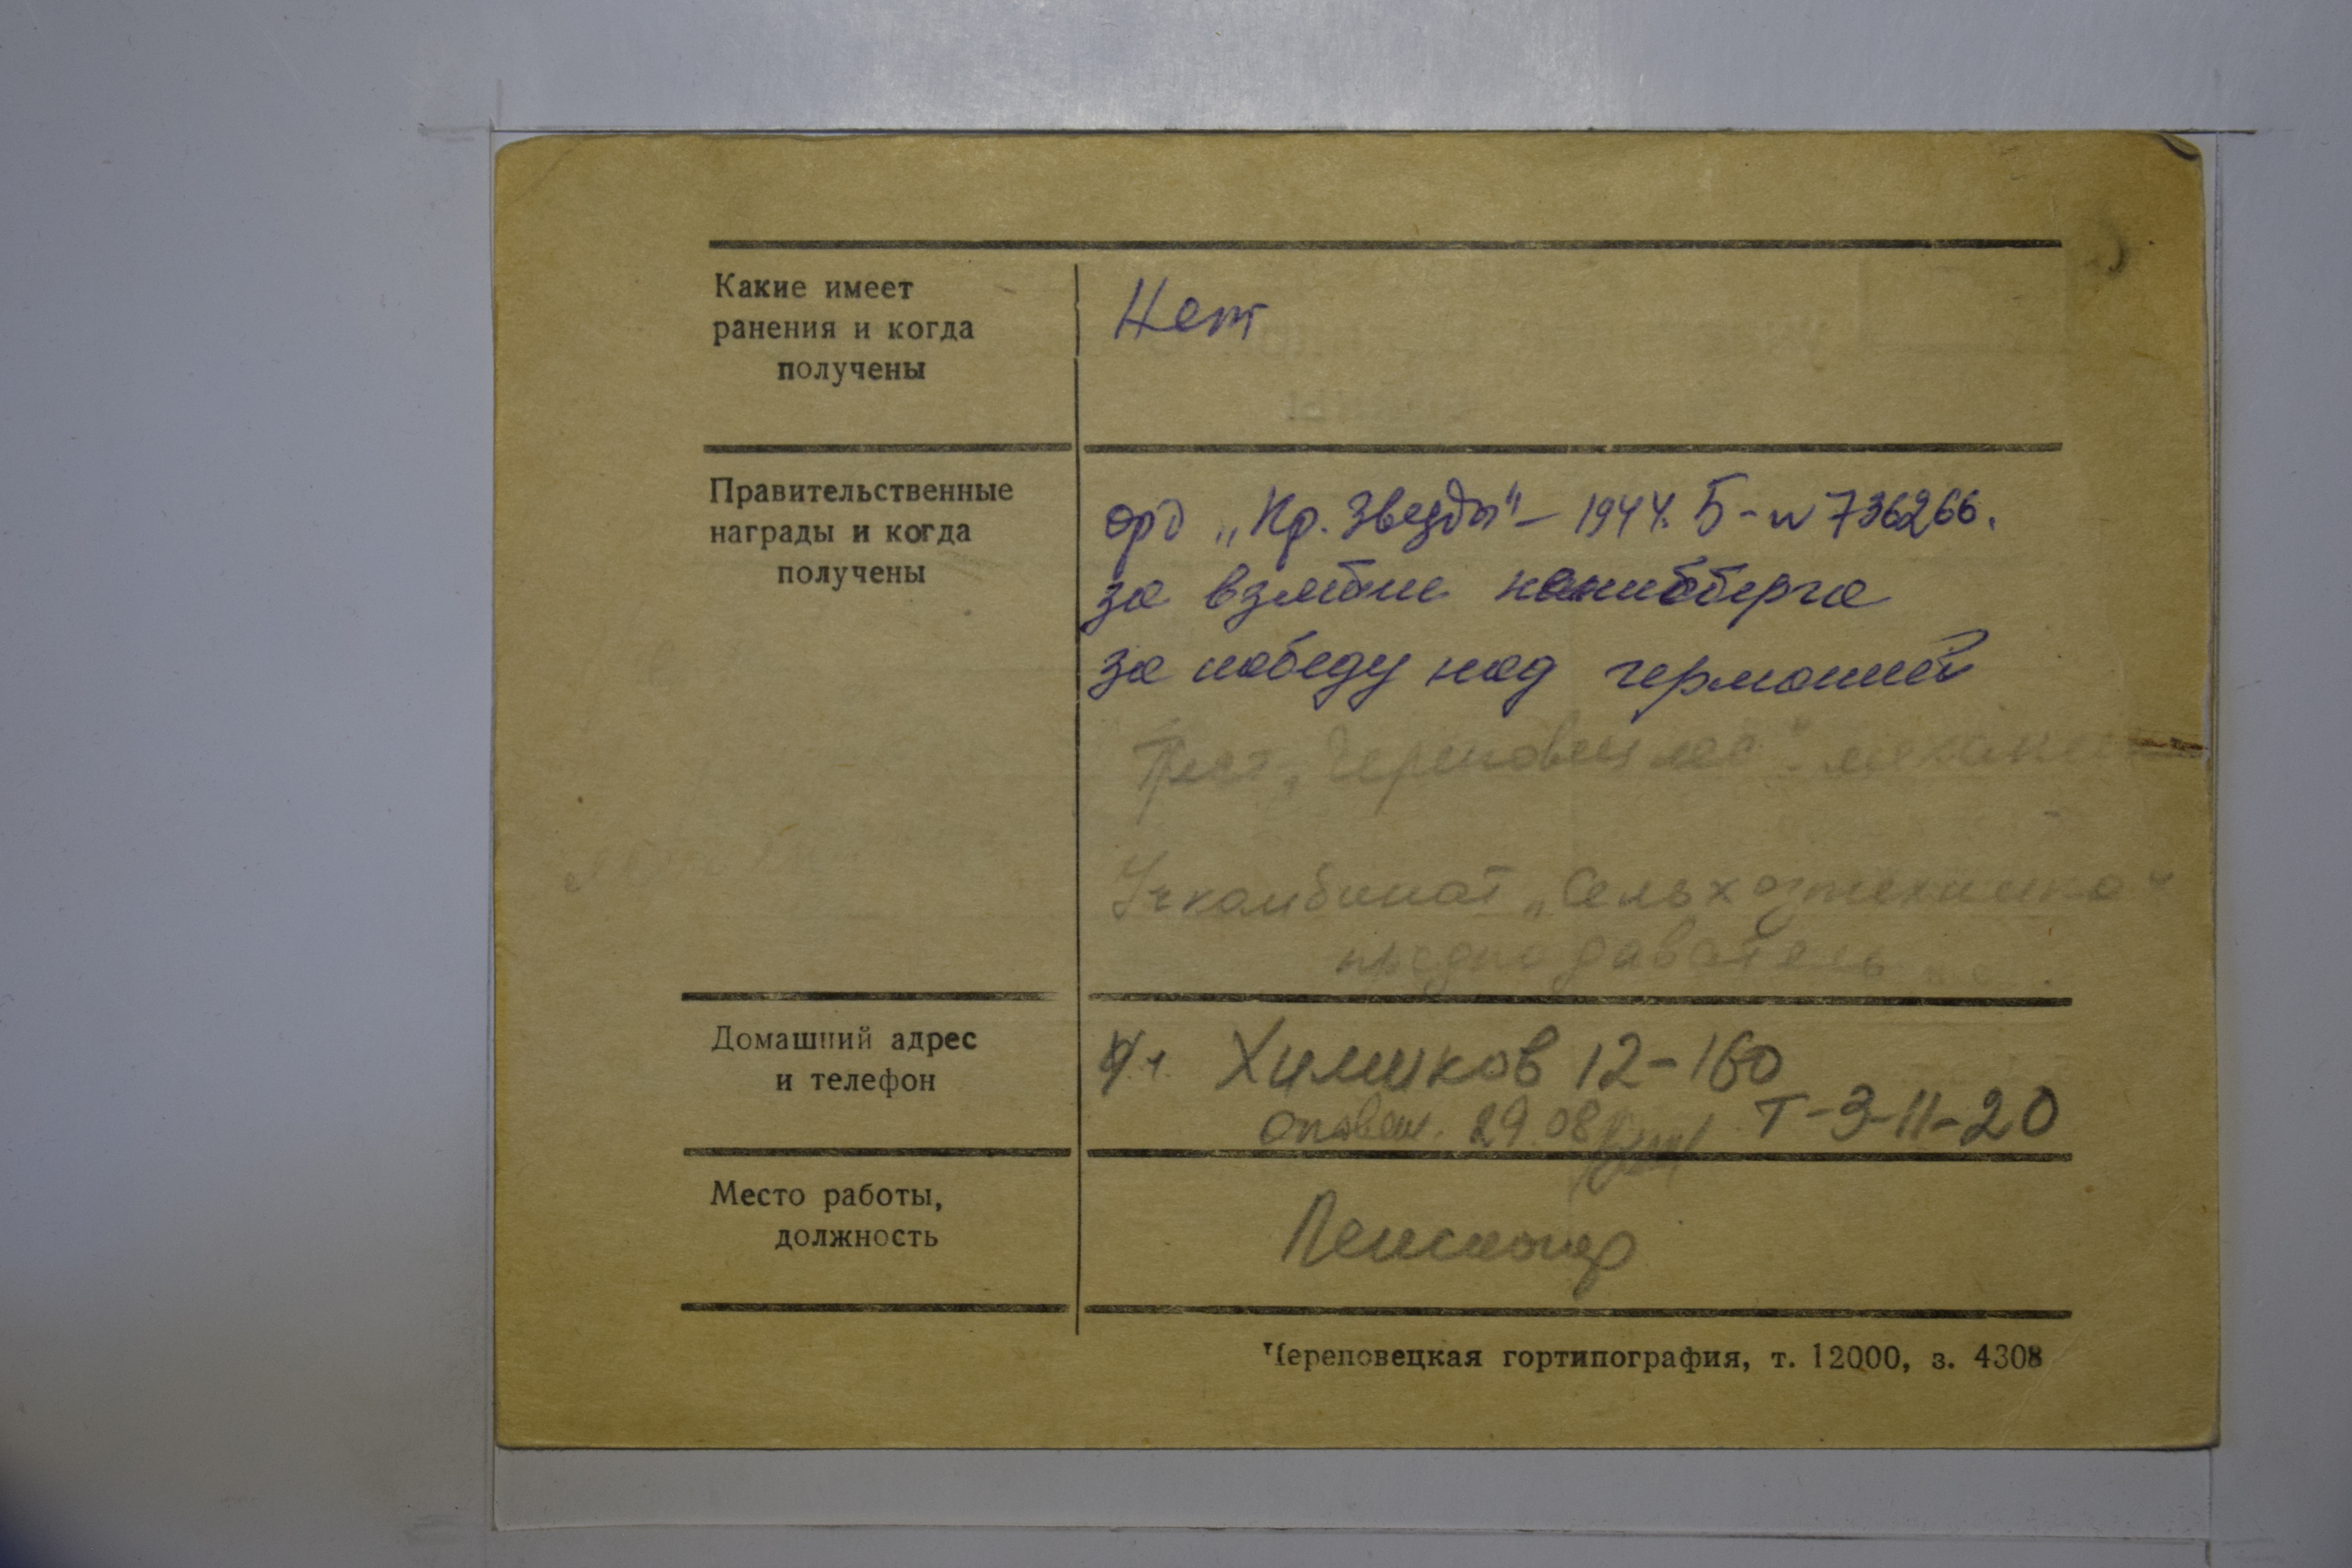 Какие имеет
ранения и когда
получены
Нет
Правительственные
награды и когда
получены
орд „Кр. Звезды" – 1944. Б-№736266.
за взятие
за победу над германией
Трест „Череповецлес"
Учкомбинат „Сельхозтехника"
Домашний адрес
и телефон
Химиков 12-160
29.08 Т-3-11-20
Место работы,
должность
Пенсионер
Череповецкая гортипография, т. 12000, з. 4308